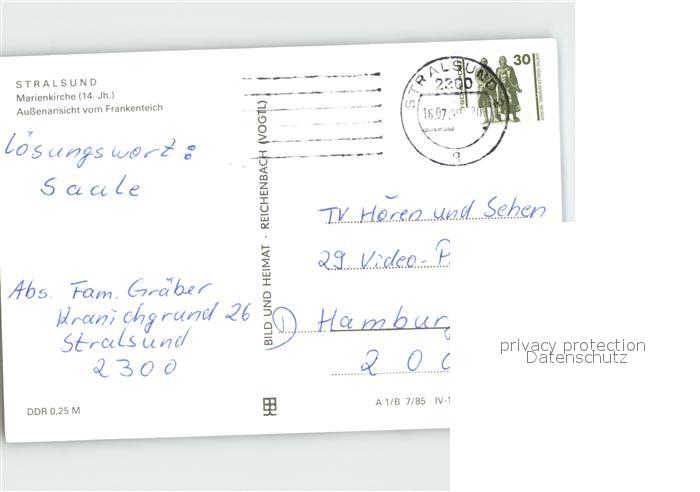 STRALSUND
Marienkirche (14. Jh.)
Außenansicht vom Frankenteich
Lösungswort:
Saale
Abs. Fam. Gräber
Kranichgrund 26
Stralsund
2300
DDR 0,25 M
BILD UND HEIMAT · REICHENBACH (VOGTL)
STRALSUND
2300
16.07.
30
TV Hören und Sehen
29. Video-P
D Hamburg
200
A 1/B 7/85 IV-1
privacy protection
Datenschutz